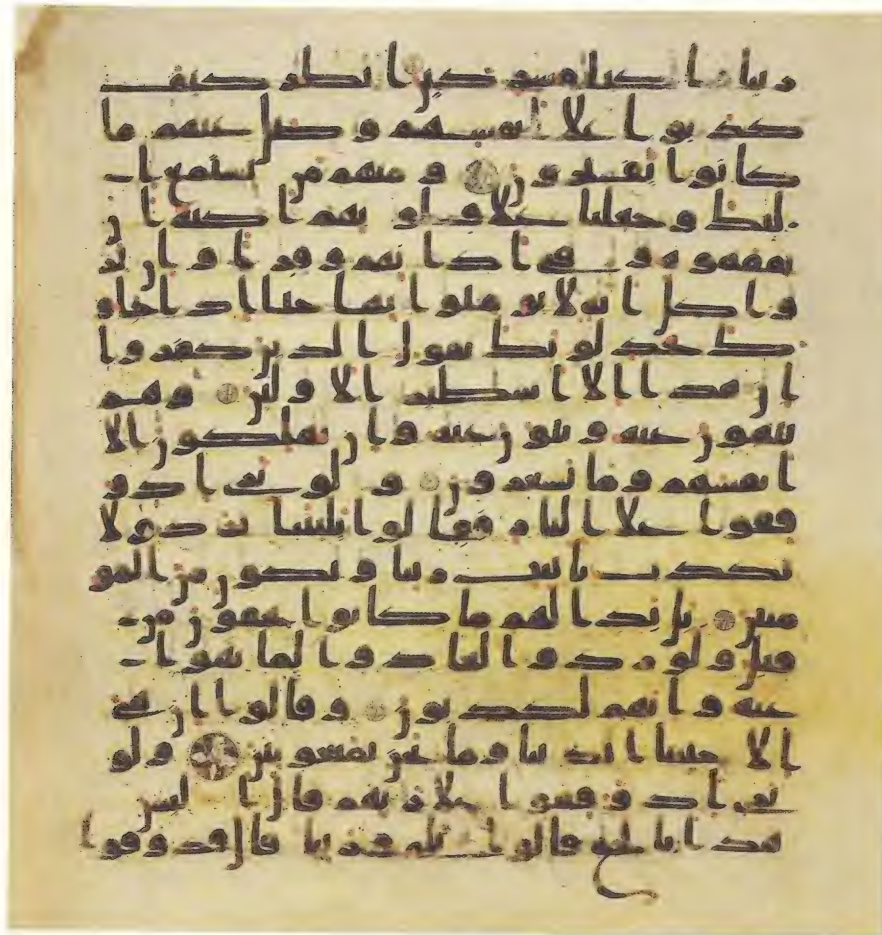 ربنا ما كنا مشركين انظر كيف
كذبوا علا انفسهم وضل عنهم ما
كانوا يفترون ومنهم من يستمع ا
ليك وجعلنا علا قلوبهم اكنة ان
يفقهوه وفي اذانهم وقرا وان ير
وا كل اية لا يومنوا بها حتا اذا جاو
ك يجدلونك يقول الذين كفروا
ان هذا الا اسطير الاولين وهم
ينهون عنه وينون عنه وان يهلكون الا
انفسهم وما يشعرون ولو ترى اذ و
قفوا علا النار فقالوا يليتنا نرد ولا
نكذب بايت ربنا ونكون من المو
منين بل بدا لهم ما كانوا يخفون من
قبل ولو ردوا لعادوا لما نهوا
عنه وانهم لكذبون وقالوا ان هي
الا حياتنا الدنيا وما نحن بمبعوثين ولو
ترى اذ وقفوا علا ربهم قال اليس
هذا بالحق قالوا بلى وربنا قال فذوقوا